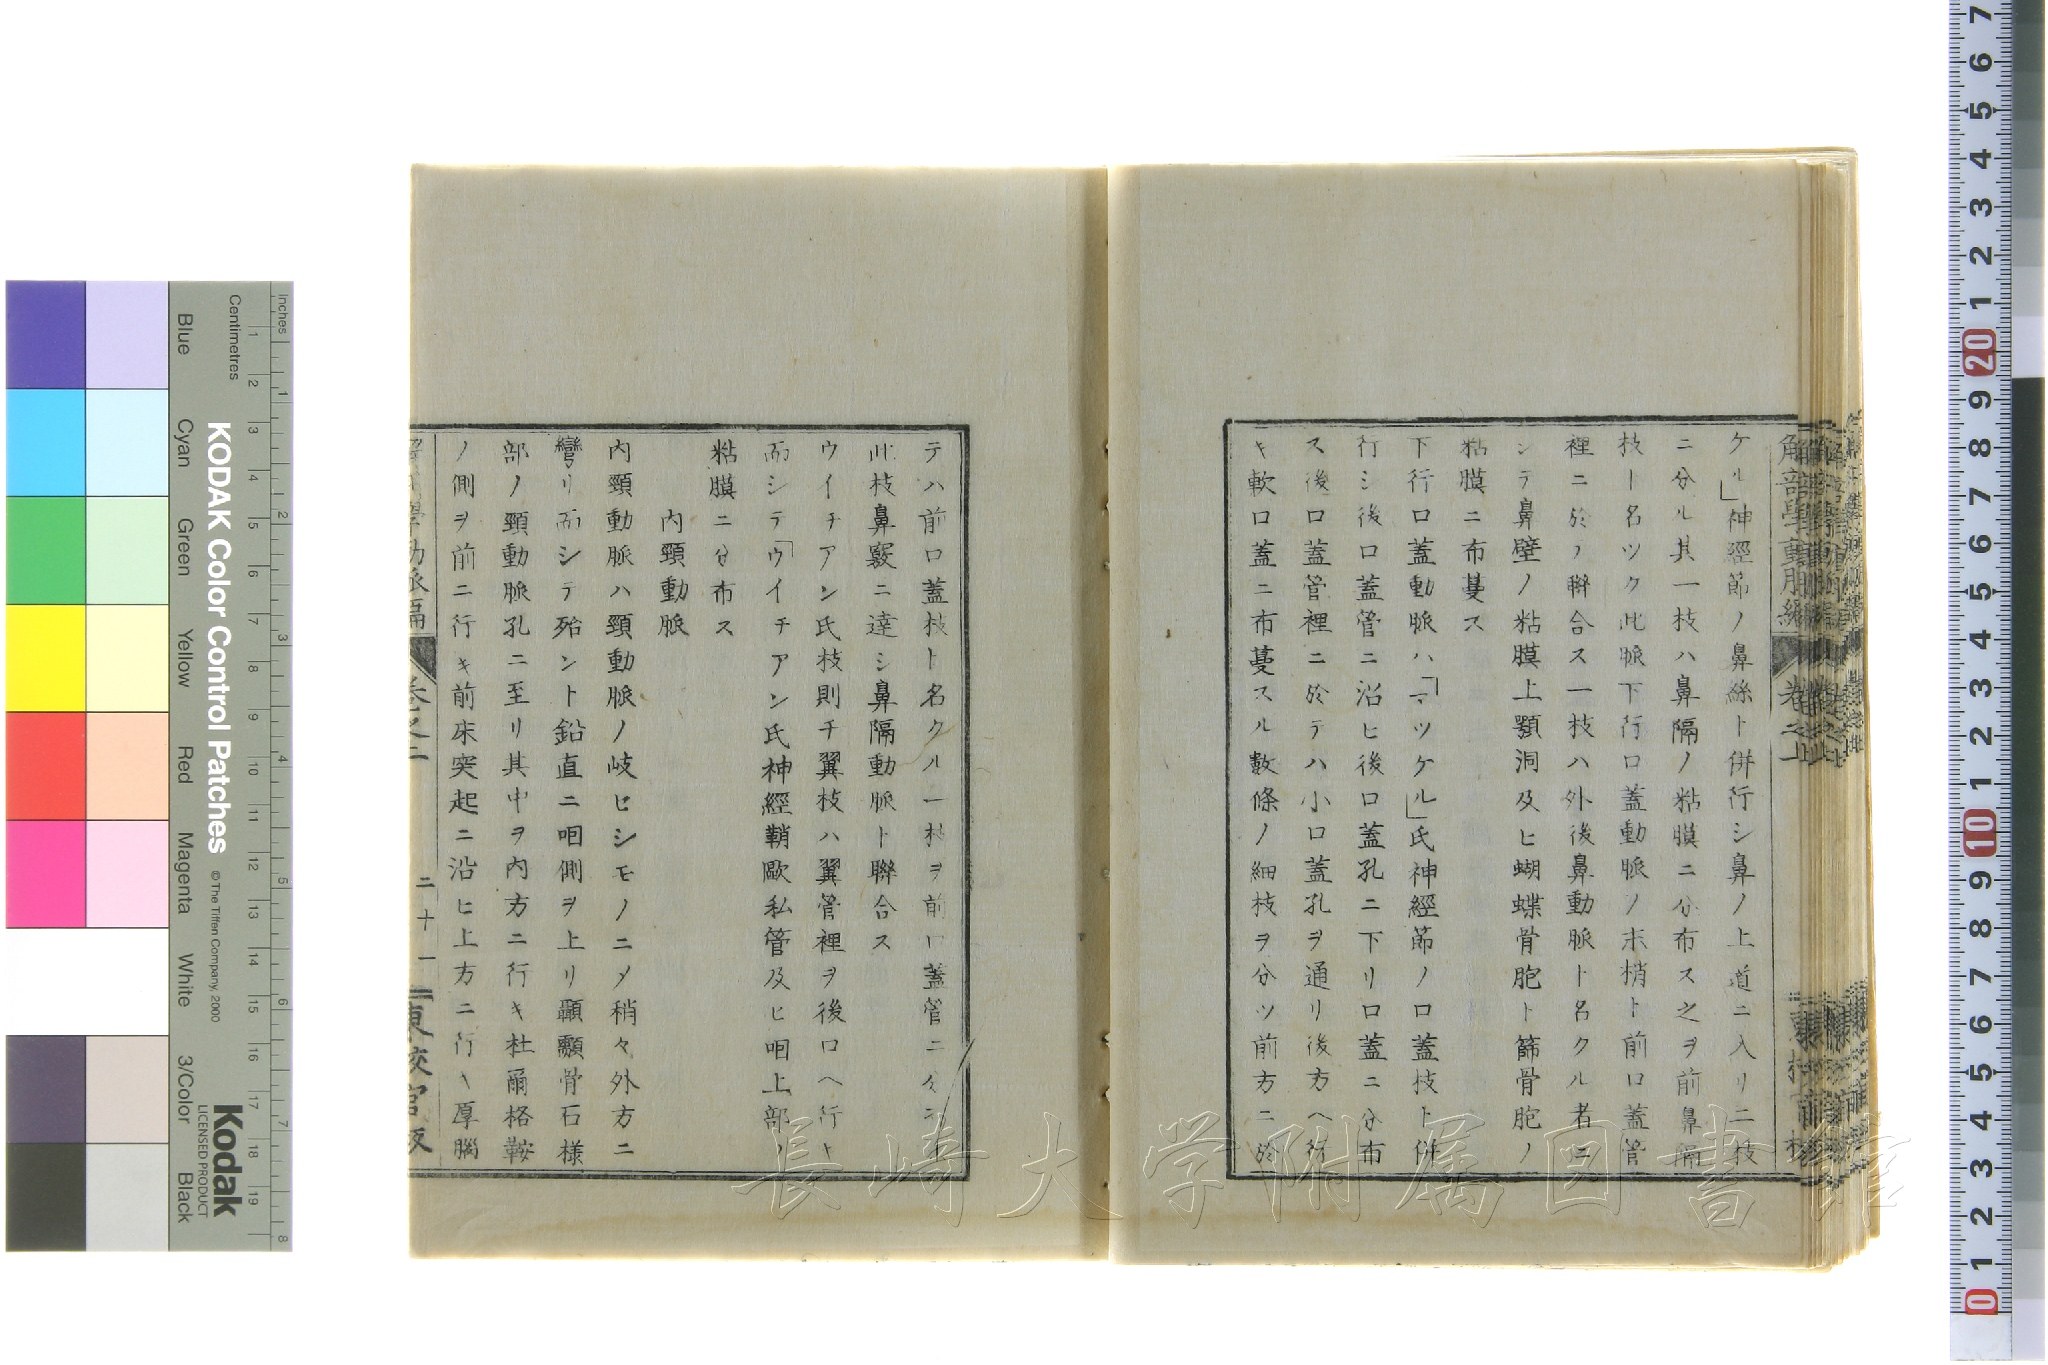 ケル」神經節ノ鼻絲ト併行シ鼻ノ上道ニ入リ二枝
ニ分ル其一枝ハ鼻隔ノ粘膜ニ分布ス之ヲ前鼻隔
枝ト名ツク此脈下行口蓋動脈ノ末梢ト前口蓋管
裡ニ於ノ聯合ス一枝ハ外後鼻動脈ト名クル者ニ
シテ鼻壁ノ粘膜上顎洞及ヒ蝴蝶骨胞ト篩骨胞ノ
粘膜ニ布蔓ス
下行口蓋動脈ハ「マツケル」氏神經節ノ口蓋枝ト併
行シ後口蓋管ニ沿ヒ後口蓋孔ニ下リ口蓋ニ分布
ス後口蓋管裡ニ於テハ小口蓋孔ヲ通リ後方ヘ行
キ軟口蓋ニ布蔓スル數條ノ細枝ヲ分ツ前方ニ於
テハ前口蓋枝ト名クル一枝ヲ前口蓋管ニ分ツ
此枝鼻竅ニ達シ鼻隔動脈ト聯合ス
ウイチアン氏枝則チ翼枝ハ翼管裡ヲ後口ヘ行キ
而シテ「ウイチアン氏神經鞘歐私管及ヒ咽上部ノ
粘膜ニ分布ス
内頸動脈
内頸動脈ハ頸動脈ノ岐セシモノニメ稍々外方ニ
彎リ而シテ殆ント鉛直ニ咽側ヲ上リ顳顬骨石様
部ノ頸動脈孔ニ至リ其中ヲ内方ニ行キ杜爾格鞍
ノ側ヲ前ニ行キ前床突起ニ沿ヒ上方ニ行キ厚腦
卷之二
二十一
長崎大学附属図書館
KODAK Color Control Patches
© The Tiffen Company, 2000
Kodak
LICENSED PRODUCT
Inches
Centimetres
Blue
Cyan
Green
Yellow
Red
Magenta
White
3/Color
Black